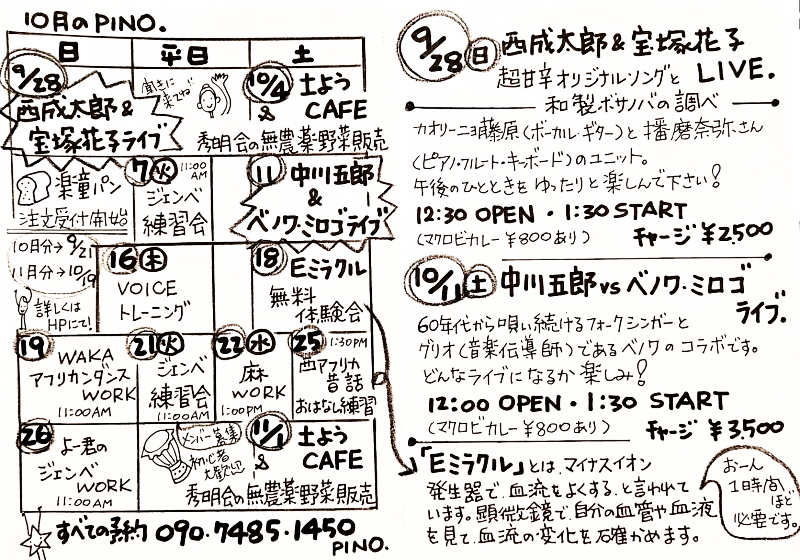 10月のPINO.
日 平日 土
9/28
西成太郎&
宝塚花子ライブ
聞きに
来てね
10/4 土よう
& CAFE
秀明会の無農薬野菜販売
楽童パン
注文受付開始
10月分→9/21
11月分→10/19
詳しくは
HPにて!
7 火 11:00AM
ジェンベ
練習会
11 中川五郎
&
ベノワ・ミロゴライブ
16 木
VOICE
トレーニング
18 Eミラクル
無料
体験会
19 WAKA
アフリカンダンス
WORK
11:00AM
21 火
ジェンベ
練習会
11:00AM
22 水
麻
WORK
1:00PM
25 1:30PM
西アフリカ
昔話
おはなし練習
26 よー君の
ジェンベ
WORK
11:00AM
メンバー募集
初心者
大歓迎
11/1 土よう
& CAFE
秀明会の無農薬野菜販売
すべての予約 090・7485・1450
PINO.
9/28 日 西成太郎&宝塚花子
超甘辛オリジナルソングと LIVE.
和製ボサノバの調べ
カオリーニョ藤原(ボーカル・ギター)と播磨奈弥さん
(ピアノ・フルート・キーボード)のユニット。
午後のひとときをゆったりと楽しんで下さい!
12:30 OPEN・1:30 START
(マクロビカレー¥800あり) チャージ ¥2,500
10/11 土 中川五郎 vs ベノワ・ミロゴ
ライブ.
60年代から唄い続けるフォークシンガーと
グリオ(音楽伝導師)であるベノワのコラボです。
どんなライブになるか楽しみ!
12:00 OPEN・1:30 START
(マクロビカレー¥800あり) チャージ ¥3,500
「Eミラクル」とは、マイナスイオン
発生器で、血流をよくすると言われて
います。顕微鏡で自分の血管や血液
を見て、血流の変化を確かめます。
お一人
1時間
ほど
必要です。